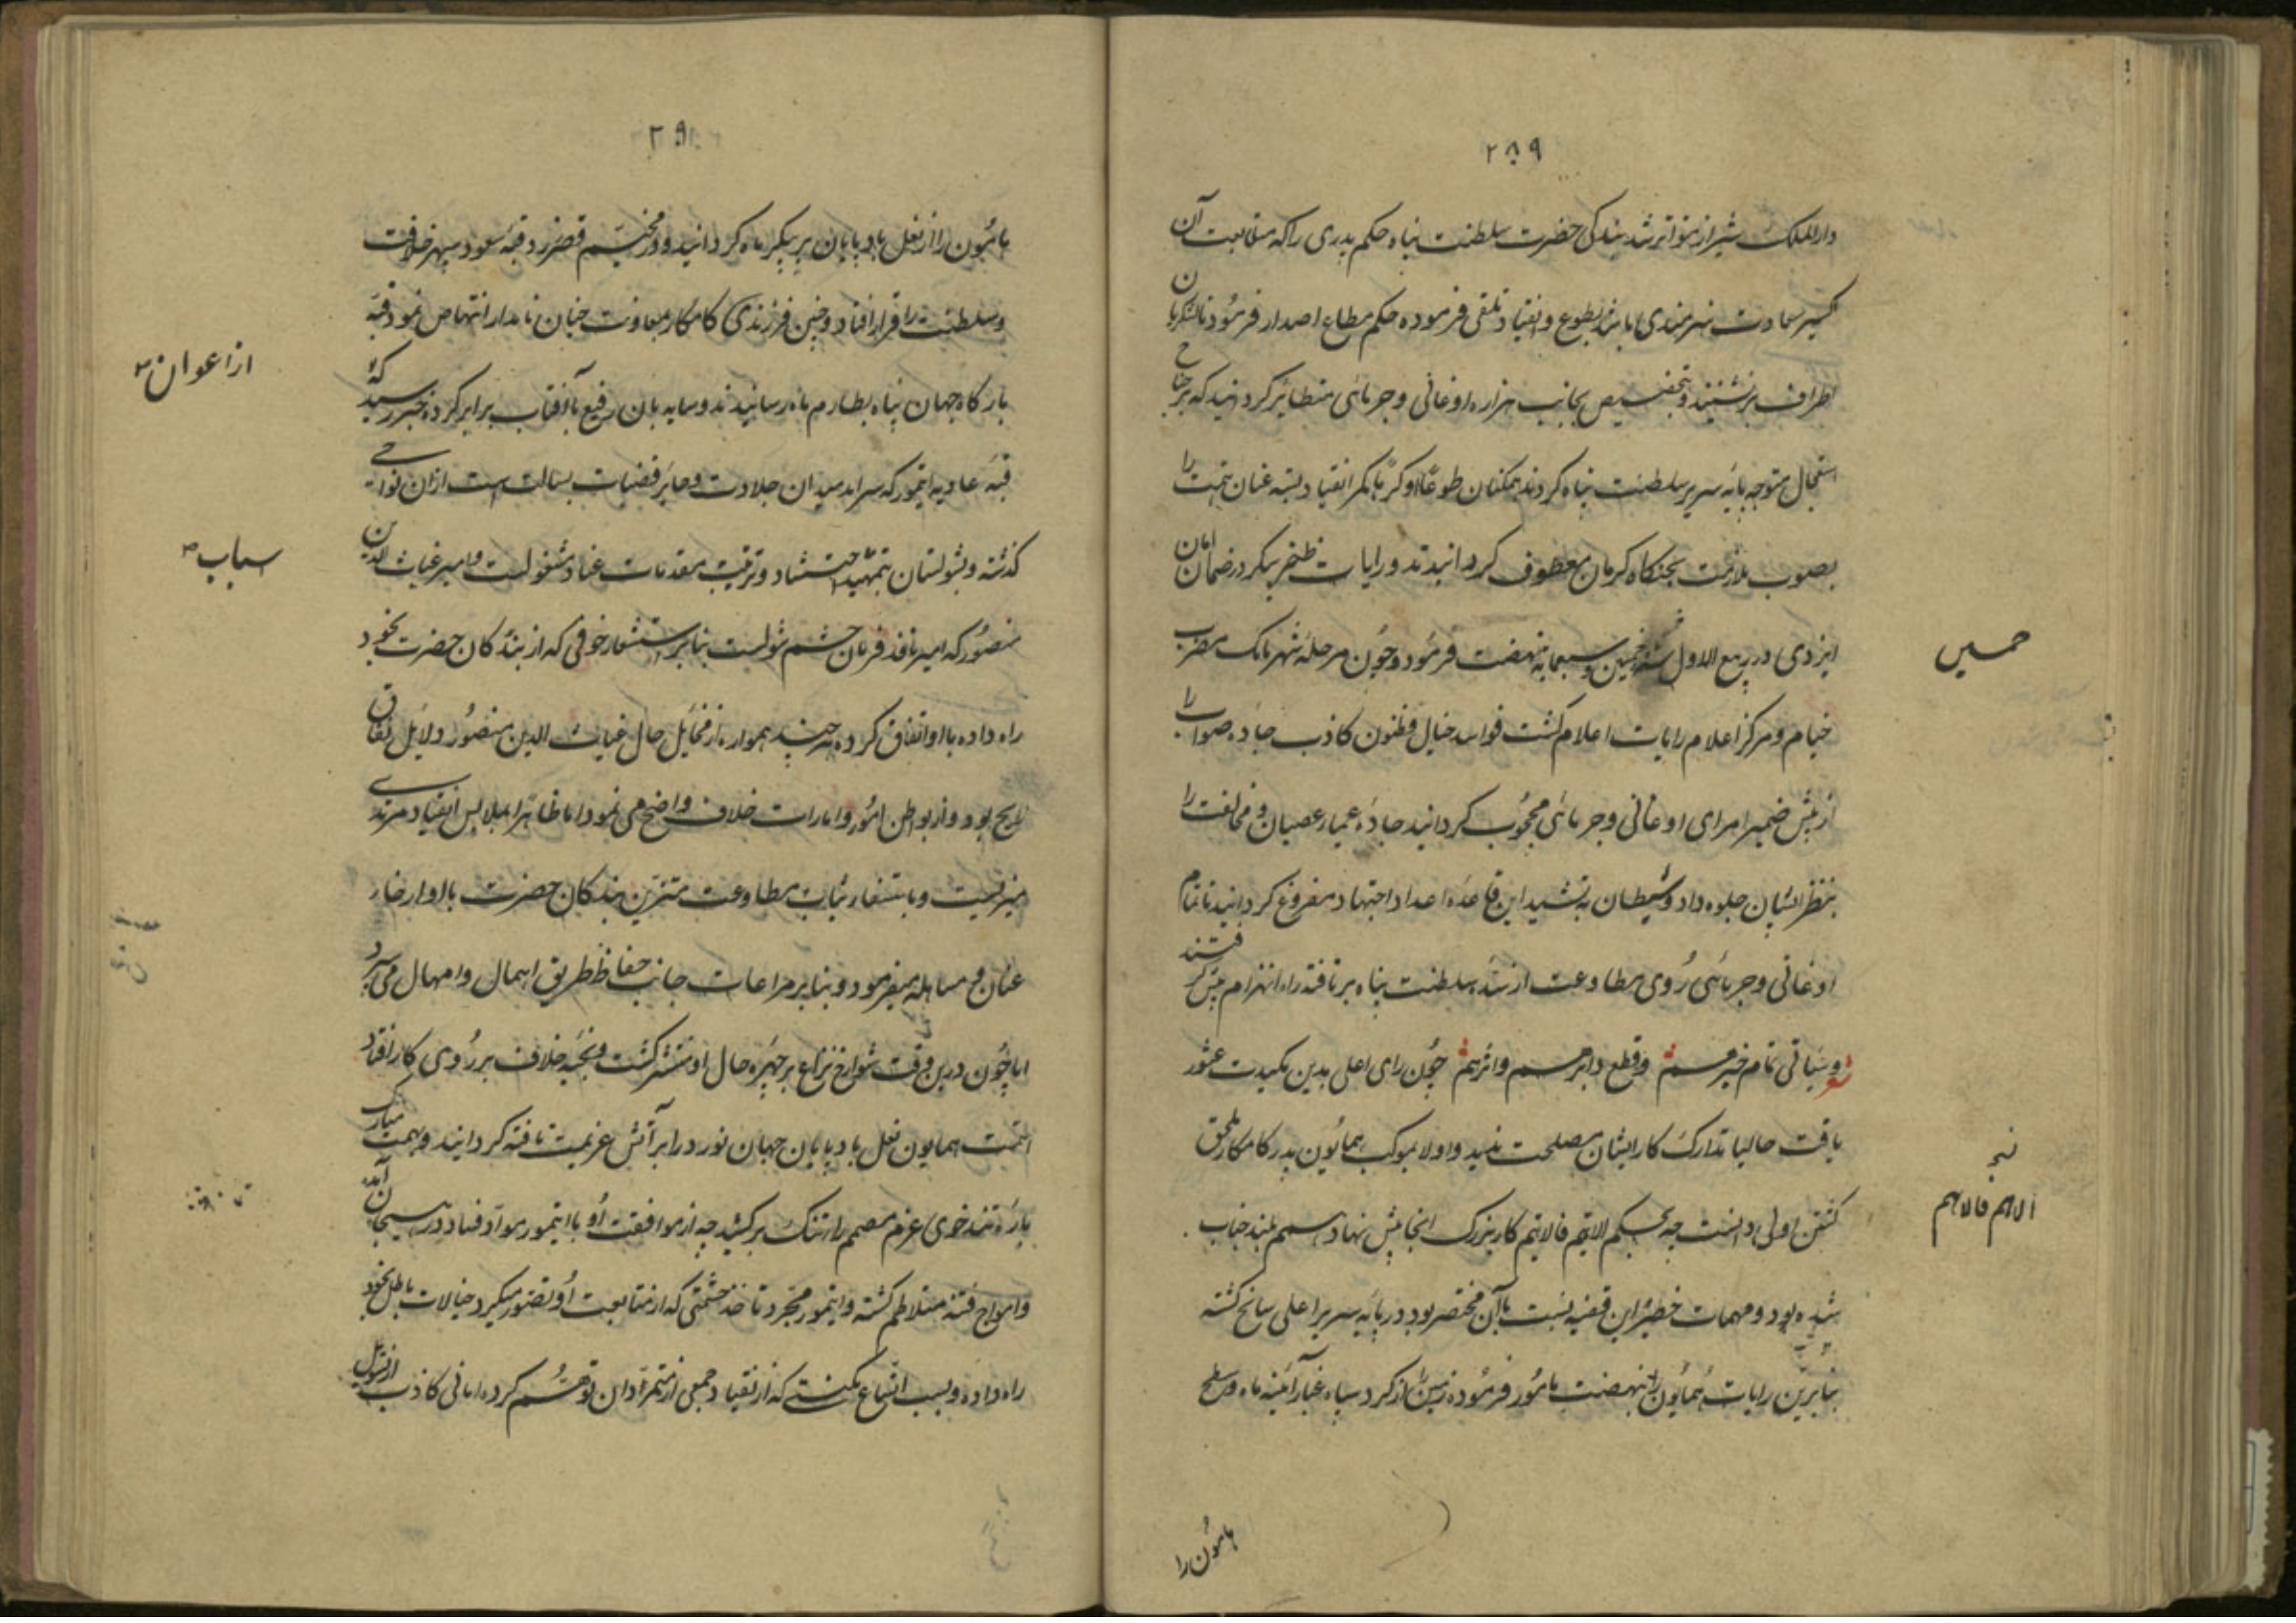 ۲۸۹
دارالملک شیراز متواتر شد بندکی حضرت سلطنت پناه حکم پدری را که متابعت آن
اکسیر سعادت سرمدی باشد بطوع و انقیاد تلقی فرموده حکم مطاع اصدار فرمود تا لشکریان
اطراف برنشینند و بتخصیص بجانب هزاره اوغانی و جرمائی متطایر کردند که بر جناح
استعجال متوجه پایه سریر سلطنت پناه کردند همکنان طوعاً او کرهاً کمر انقیاد بسته عنان نهمت را
بصوب ملازمت بجنکاه کرمان معطوف کردانیدند و رایات ظفر پیکر در ضمان امان
ایزدی در ربیع الاول سنه خمسین و سبعمایه نهضت فرمود و چون مرحله شهر بابک مضرب
خیام و مرکز اعلام رایات اعلام کشت فواسد خیال و ظنون کاذب جاده صواب را
از پیش ضمیر امرای اوغانی و جرمائی محجوب کردانید جاده عمیاء عصیان و مخالفت را
بنظر ایشان جلوه داد و شیطان بتشیید این قاعده اعداد اجتهاد مفروغ کردانید تا تمام
اوغانی و جرمائی روی مطاوعت از سده سلطنت پناه برتافتند راه انهزام پیش کرفتند
و سیاتی تمام خبرهم و قطع دابرهم و اثرهم چون رای اعلی بدین مکیدت عثور
یافت حالیا تدارک کار ایشان مصلحت ندید و اولا بموکب همایون پدر کامکار ملحق
کشتن اولی دانست چه بحکم الاهم فالاهم کار بزرک انجا پیش نهاد همم بلند جناب
شده بود و مهمات خطیر این قضیه نسبت باآن مختصر بود در پایه سریر اعلی سانح کشته
بنابرین رایات همایون را بنهضت مامور فرموده زمین را از کرد سپاه غبار آئینه ماه و سطح
هامون را
حمسین
نبر
الاهم فالاهم
۲۹۰
هامون را از نعل بادپایان پر پیکر ماه کردانید و در مخیم قصر زرد قبه سعود سپهر خلافت
و سلطنت را قران افتاد و چنین فرزندی کامکار بمعاونت چنان نامدار انتهاض نمود قبه
بارکاه جهان پناه بطارم ماه رسانیدند و سایه بان رفیع باآفتاب برابر کرده خبر رسید که
قبه عادیه ایتمور که سرآمد میدان جلادت و حایز قصبات بسالت است ازان نواحی
کذشته و بشولستان بتمهید احتشاد و ترتیب مقدمات عناد مشغولست و امیر غیاث الدین
منصور که امیر نافذ فرمان حشم شولست بنابر استشعار خوفی که از بندکان حضرت بخود
راه داده با او اتفاق کرده هرچند همواره از مخایل حال غیاث الدین منصور دلایل نفاق
لایح بود و از بواطن امور و امارات خلاف واضح می نمود اما ظاهرا بملابس انقیاد مرتدی
میزیست و باستشعار ثیاب مطاوعت متزین بندکان حضرت با او ارخاء
عنان و مساهله میفرمود و بنابر مراعات جانب حفاظ طریق اهمال و امهال می سپرد
اما چون درین وقت شوارخ نزاع بر چهره حال او منتشر کشت و پنجه خلاف بر روی کار افتاد
نهمت همایون نعل بادپایان جهان نورد را بر آتش عزیمت تافته کردانید و همت مبارک
باره تندخوی عزم مصمم را تنک برکشید چه از موافقت او با ایتمور مواد فساد در هیجان آمده
و امواج فتنه متلاطم کشته و ایتمور بمجرد تاخذ حشمتی که از متابعت او تصور میکرد خیالات باطل بخود
راه داده و بسبب اتساع مکنتی که از انقیاد جمعی از متمردان توهم کرده امانی کاذب از تسویل
از اعوان
اسباب